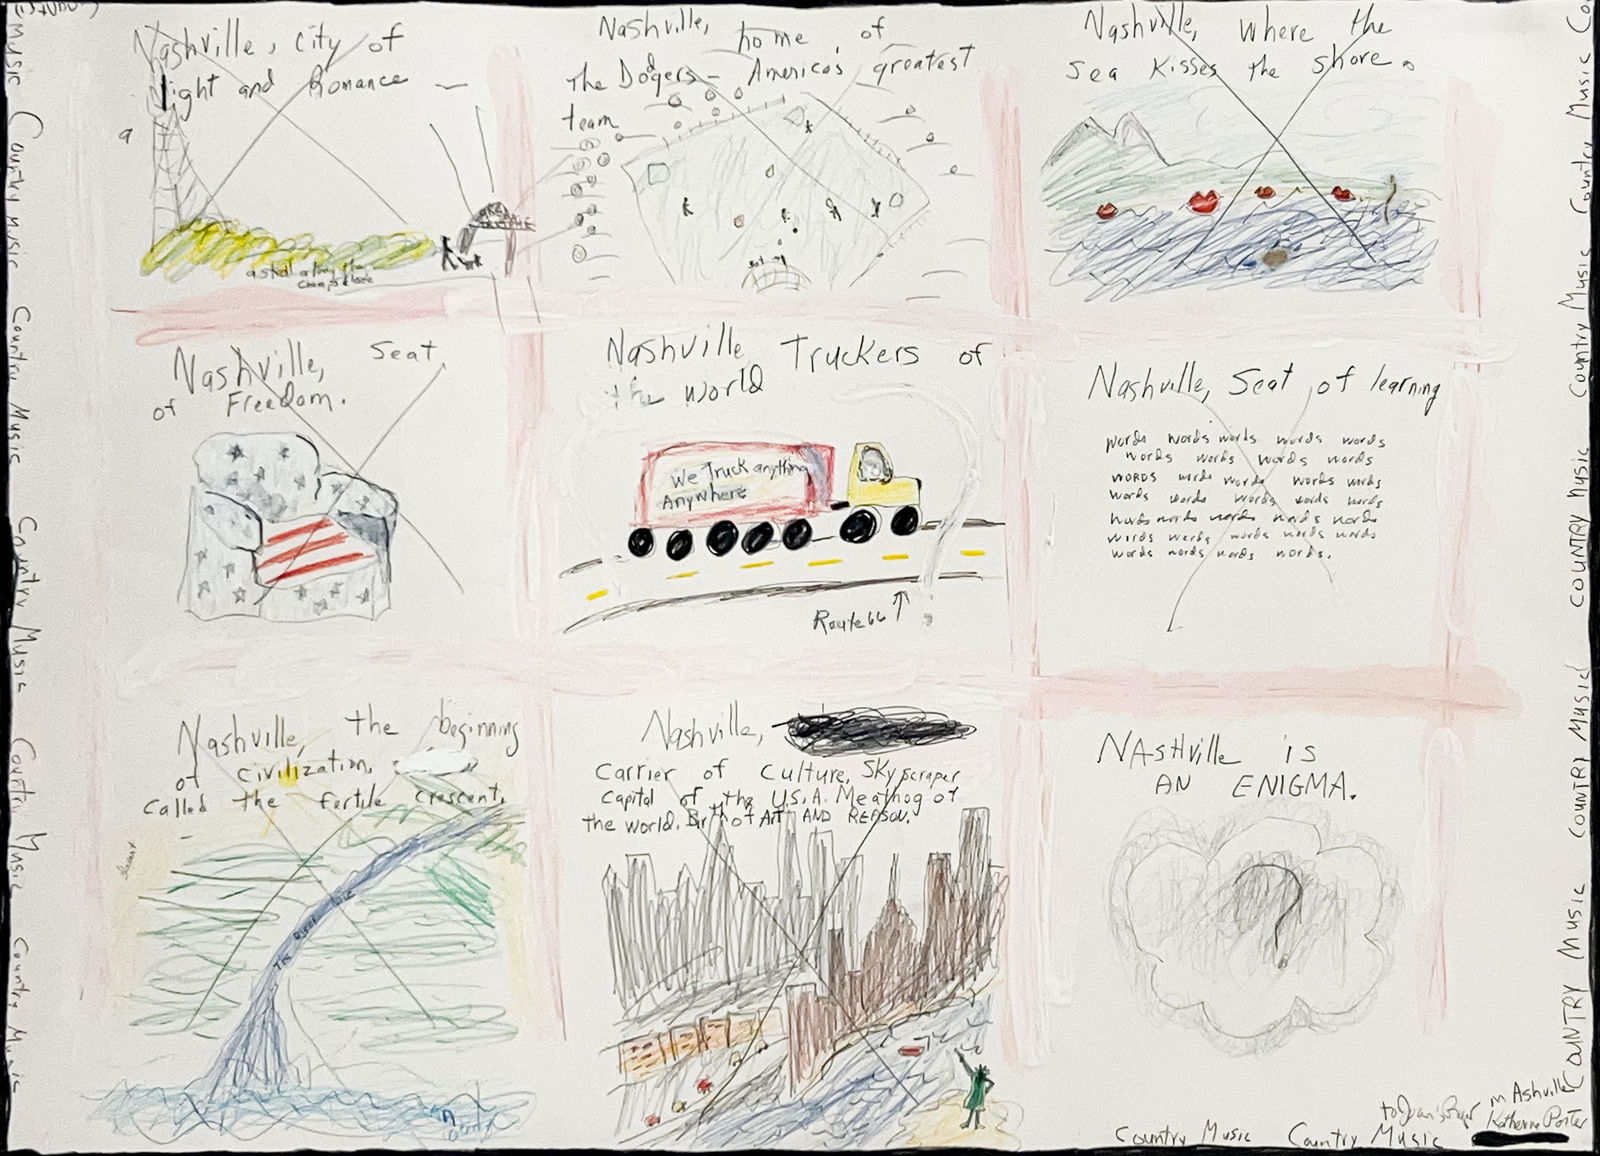 Nashville, city of
light and Romance
a stroll along the
Nashville, home of
The Dodgers - America's greatest
team
Nashville, where the
sea kisses the shore.
Nashville, Seat
of Freedom.
Nashville Truckers of
the world
We Truck anything
Anywhere
Route 66 ↑
Nashville, Seat of learning
words words words words words
words words words words
words words words words words
words words words words words
words words words words words
words words words words words
words words words words.
Nashville, the beginning
of civilization,
called the fertile crescent.
The
Nile
Nashville,
Carrier of Culture, Skyscraper
Capitol of the U.S.A. Meathog of
the world. Birth of Art AND REASON.
NAsHville is
AN ENIGMA.
Country Music Country Music Country Music Country Music Country Music Country Music
Country Music Country Music COUNTRY Music COUNTRY Music COUNTRY Music COUNTRY Music
Country Music Country Music
in Ashville
Katherine Porter